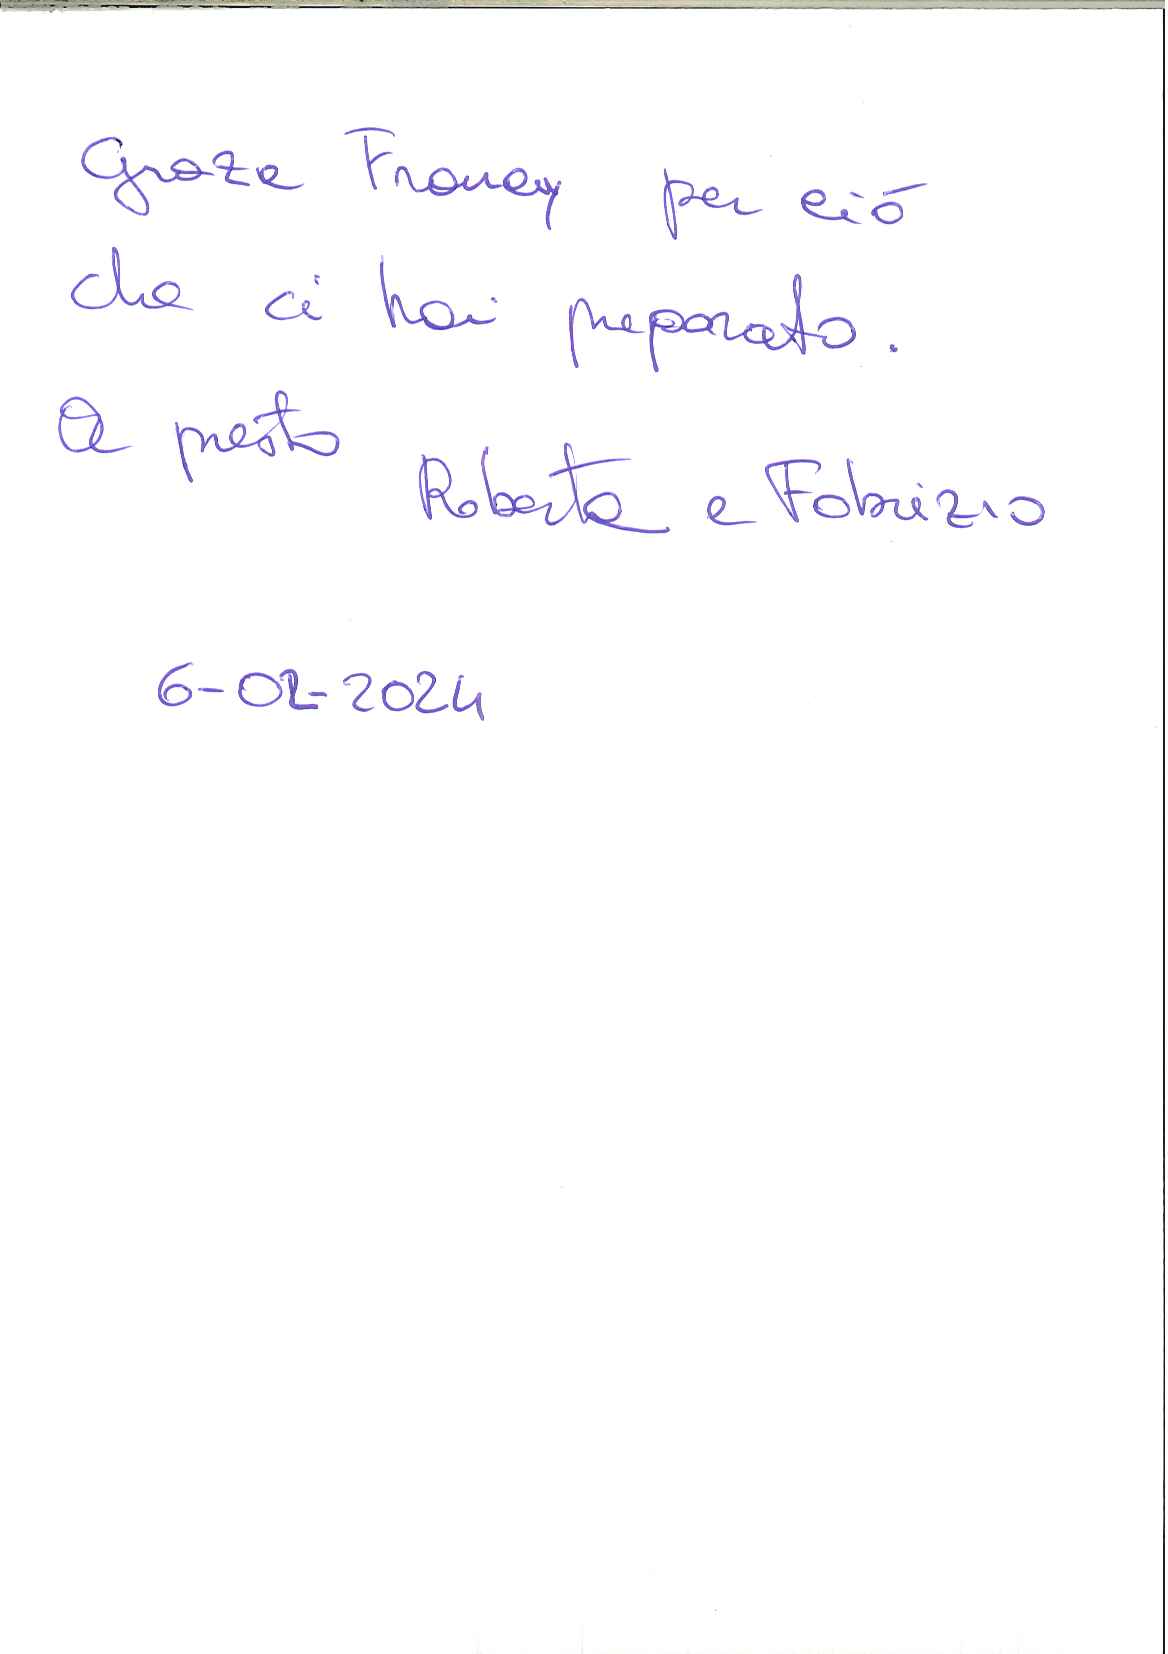 Graze Francy per ciò
che ci hai preparato.
A presto
Roberta e Fabrizio
6-02-2024